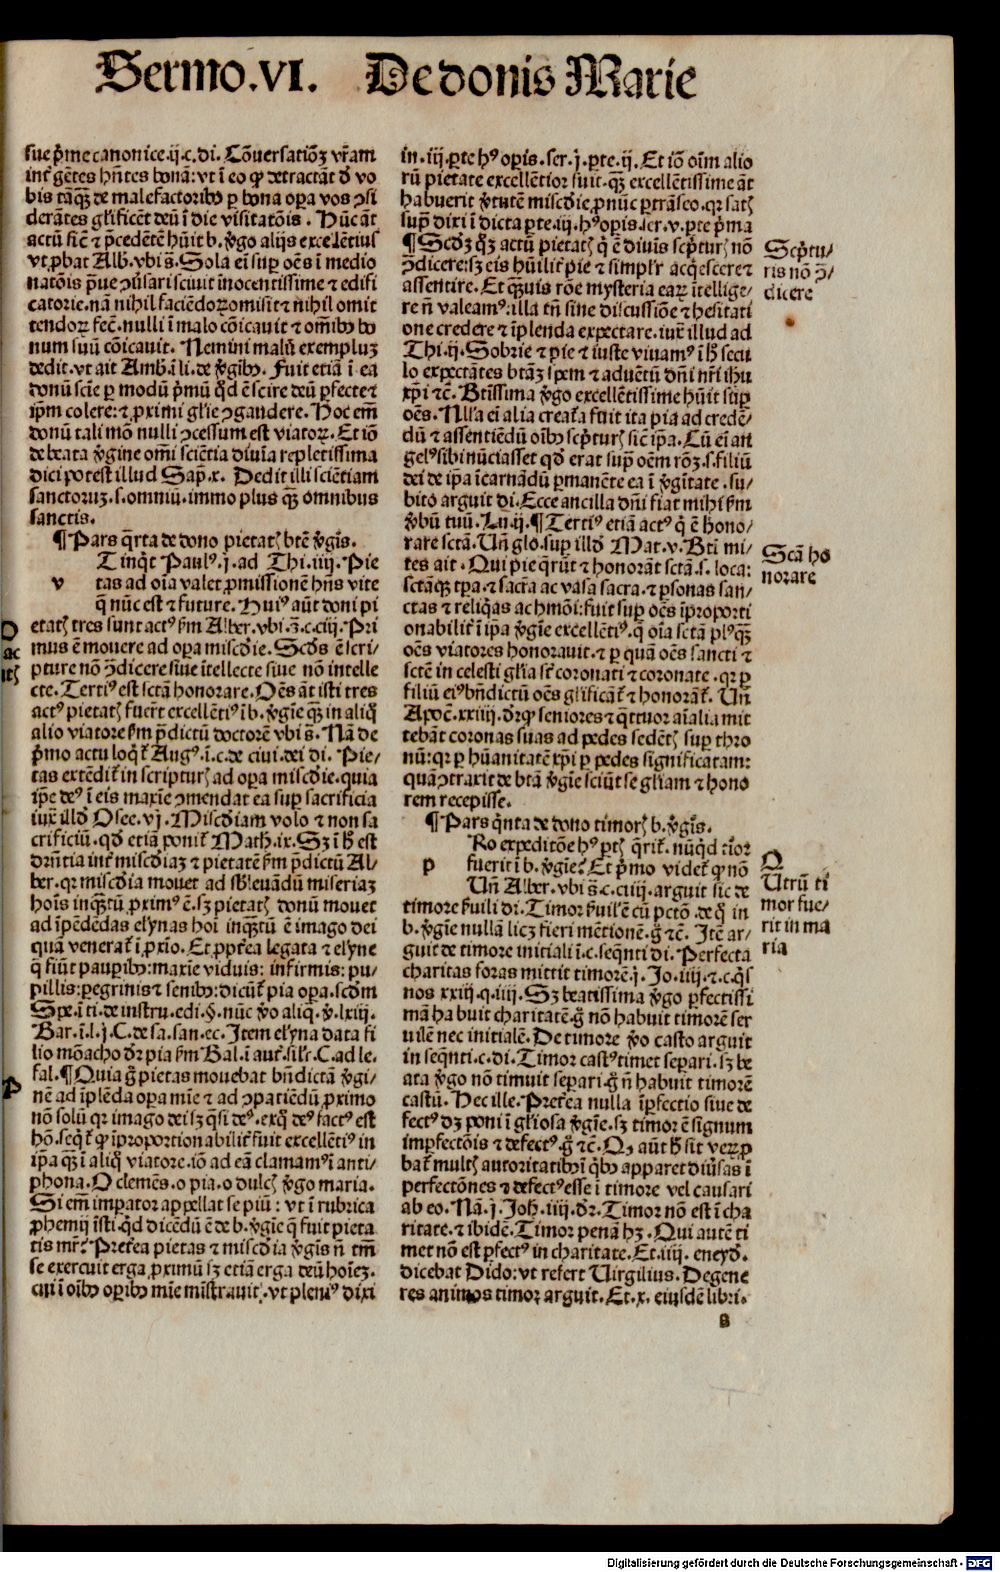 Sermo.VI. De donis Marie
sue p̄me canonice.ij.c.di. Cōuersatiōꝫ vr̄am
int̄ gētes hn̄tes bonā: vt ī eo ꝙ detractāt ď vo
bis tāqꝫ de malefactoribꝰ ꝑ bona oꝑa vos ↄsi
derātes gl̄ificēt deū ī die visitatōis. Hūc āt
actū sic̄ ⁊ p̄cedētē hūit b. ṽgo alijs excellētius
vt ꝓbat Alb̄. vbi s̄. Sola em̄ suꝑ oēs ī medio
natōis praue ↄuersari sciuit īnocentissime ⁊ edifi
catorie. nā nihil faciēdoꝝ omisit ⁊ nihil omit
tendoꝝ fec̄. nulli ī malo cōicauit ⁊ om̄ibꝰ bo
num suū cōicauit. Nemini malū exempluꝫ
dedit. vt ait Amb̄. ī li. de ṽgibꝰ. Fuit etiā ī ea
donū scīe ꝑ modū p̄mū qd̄ ē scire deū ꝑfecte ⁊
ip̄m colere: ⁊ ꝓximi gl̄ie ↄgaudere. Hoc em̄
donū tali mō nulli ↄcessum est viatoꝝ. Et iō
de beata ṽgine om̄i sciētia diuīa repletissima
dici potest illud Sap̄. x. Dedit illi sciētiam
sanctoruꝫ. s. omniū. immo plus qꝫ omnibus
sanctis.
¶ Pars q̄rta de dono pietatꝭ btē ṽgīs.
v
Tinqͥt Paulꝰ. j. ad Thi. iiij. Pie
tas ad oīa valet ꝓmissionē hn̄s vite
q̄ nūc est ⁊ future. Huiꝰ aūt doni pi
etatꝭ tres sunt actꝰ ẜm Alber. vbi s̄. c. ciij. Pri
mus ē mouere ad oꝑa miscďie. Scďs ē scri/
pture nō ↄ̄dicere siue ītellecte siue nō intelle
cte. Tertiꝰ est sctā honorare. Oēs āt isti tres
actꝰ pietatꝭ fuer̄t excellētiꝰ ī b. ṽgīe qꝫ in aliqͦ
alio viatore ẜm p̄dictū doctorē vbi s̄. Nā de
p̄mo actu loqͥt̄ Augꝰ. ī. c. de ciui. dei di. Pie/
tas extēdit̄ in scripturꝭ ad oꝑa miscďie. quia
ip̄e deꝰ ī eis maxīe ↄmendat ea suꝑ sacrificia
iux̄ illď Osee. vj. Miscďiam volo ⁊ non sa
crificiū. qď etiā ponit̄ Math. ix. Sꝫ ī h̄ est
dr̄ntia int̄ miscďiaꝫ ⁊ pietatē ẜm p̄dictū Al/
ber. qꝛ miscďia mouet ad sb̄leuādū miseriaꝫ
hoīs inqꝫtū ꝓximꝰ ē. sꝫ pietatꝭ donū mouet
ad īpēdēdas elynas hoī inqꝫtū ē imago dei
quā venerat̄ ī ꝓxīo. Et ꝓpt̄ea legata ⁊ elyne
q̄ fiūt pauꝑibꝰ: maxīe viduis: infirmis: pu/
pillis: ꝑegrinis ⁊ senibꝰ: dicūt̄ pia oꝑa. scďm
Spe. ī ti. de instru. edi. §. nūc ṽo aliq̄. ꝟ. lxiij.
Bar. ī. l. j. C. de sa. san. ec. Item elyna data fi
lio mōacho dr̄ pia ẜm Bal. ī aut̄. sil'r. C. ad le.
fal. ¶ Quia g̊ pietas mouebat bn̄dictā ṽgi/
nē ad īplēda oꝑa mīe ⁊ ad ↄpatiēdū ꝓximo
nō solū qꝛ imago dei sꝫ q̄si deꝰ. ex qͦ deꝰ factꝰ est
hō. seqͥt̄ ꝙ īproportionabilit̄ fuit excellētiꝰ in
ip̄a qꝫ ī aliqͦ viatore. iō ad eā clamamꝰ ī anti/
phona. O clemēs. o pia. o dulcꝭ ṽgo maria.
Si em̄ imꝑator appellat̄ se piū: vt ī rubrica
ꝓhemij īsti. qͥd dicēdū ē de b. ṽgīe q̄ fuit pieta
tis mr̄? Pret̄ea pietas ⁊ miscďia ṽgīs nō tm̄
se exercuit erga ꝓximū sꝫ etiā erga deū hoīeꝫ.
cui ī oībꝰ oꝑibꝰ mīe mīstrauit. vt pleniꝰ dixi
in. iij. ꝑte hꝰ oꝑis. ser. j. ꝑte. ij. Et iō oīm alio
rū pietate excellētior fuit. qꝫ excellētissime āt
habuerit ṽtutē miscďie ꝓ nūc ꝑtrāseo. qꝛ satꝭ
supͣ dixi ī dicta ꝑte. iij. hꝰ oꝑis. ser. v. ꝑte p̄ma
¶ Scďꝫ qͦꝫ actū pietatꝭ q̄ ē diuīs scp̄turꝭ nō
ↄ̄dicere: sꝫ eis hūilit̄ pie ⁊ simpl'r acq̄escere ⁊
assentire. Et qꝫuis rōe mysteria eaꝝ ītellige/
re nō valeamꝰ: illa tn̄ sine discussiōe ⁊ hesitati
one credere ⁊ īplenda expectare. iux̄ illud ad
Thi. ij. Sobrie ⁊ pie ⁊ iuste viuamꝰ ī h̄ secu
lo expectātes btāꝫ spem ⁊ aduētū dn̄i nr̄i ihu
xp̄i ⁊c̄. Btīssima ṽgo excellētissime hūit suꝑ
oēs. Nll'a em̄ alia creata fuit ita pia ad credē/
dū ⁊ assentiēdū oībꝰ scp̄turꝭ sic̄ ip̄a. Cū em̄ an
gelꝰ sibi nūciasset qď erat supͣ oēm rōꝫ. s. filiū
dei de ip̄a īcarnādū ꝑmanēte ea ī ṽgītate. su/
bito arguit di. Ecce ancilla dn̄i fiat mihi ẜm
ṽbū tuū. Lu. ij. ¶ Tertiꝰ etiā actꝰ q̄ ē hono/
rare sctā. Un̄ glo. suꝑ illď Mat. v. Btī mi/
tes ait. Qui pie qͥrūt ⁊ honorāt sctā. s. loca:
sctāqꝫ tꝑa. ⁊ sacra ac vasa sacra. ⁊ ꝑsonas san/
ctas ⁊ reliqͥas ac hmōi: fuit suꝑ oēs īproporti
onabilit̄ ī ip̄a ṽgīe excellētiꝰ. q̄ oīa sctā plꝰqꝫ
oēs viatores honorauit. ⁊ ꝑ quā oēs sancti ⁊
sctē in celesti gl̄ia st̄ coronati ⁊ coronate. qꝛ ꝑ
filiū eiꝰ bn̄dictū oēs gl̄ificāt̄ ⁊ honorāt̄. Un̄
Apoc̄. xxiiij. dr̄ ꝙ seniores ⁊ q̄ttuor aīalia mit
tebāt coronas suas ad pedes sedētꝭ suꝑ thro
nū: qꝛ ꝑ hūanitatē xp̄i ꝑ pedes significatam:
quā ↄtraxit de btā ṽgīe sciūt se gl̄iam ⁊ hono
rem recepisse.
¶ Pars qͥnta de dono timorꝭ b. ṽgīs.
p
Ro expeditōe hꝰ ꝑtꝭ q̄rit̄. nūqͥd tior
fuerit ī b. ṽgīe? Et p̄mo videt̄ ꝙ nō
Un̄ Alber. vbi s̄. c. ciiij. arguit sic de
timore ẜuili di. Timor ẜuil' ē cū pctō. de q̄ in
b. ṽgīe nullā licꝫ fieri mētionē. g̊ ⁊c̄. Itē ar/
guit de timore initiali ī. c. seqn̄ti di. Perfecta
charitas foras mittit timorē. j. Jo. iiij. ⁊. c. qͥs
nos xxiij. q. iiij. Sꝫ beatissima ṽgo ꝑfectissi
mā habuit charitatē. g̊ nō habuit timorē ser
uilē nec initialē. De timore ṽo casto arguit
in seqn̄ti. c. di. Timor castꝰ timet separi. sꝫ be
ata ṽgo nō timuit separi. g̊ nō habuit timorē
castū. Hec ille. Pret̄ea nulla īꝑfectio siue de
fectꝰ dꝫ poni ī gl̄iosa ṽgīe. sꝫ timor ē signum
imꝑfectōis ⁊ defectꝰ. g̊ ⁊c̄. Qꝫ aūt h̄ sit veꝝ ꝓ
bat̄ multꝭ autoritatibꝰ ī qͥbꝰ apparet diůsas ī
perfectōnes ⁊ defectꝰ esse ī timore vel causari
ab eo. Nā. j. Joh. iiij. dr̄. Timor nō est ī cha
ritate. ⁊ ibidē. Timor penā hꝫ. Qui autē ti
met nō est ꝑfectꝰ in charitate. Et. iiij. eneyď.
dicebat Dido: vt refert Uirgilius. Degene
res animos timor arguit. Et. x. eiusdē libri.
s
Scp̄tu/
ris nō ↄ̄/
dicere
Sctā ho
norare
Q
Utrū ti
mor fue/
rit in ma
ria
Digitalisierung gefördert durch die Deutsche Forschungsgemeinschaft - DFG